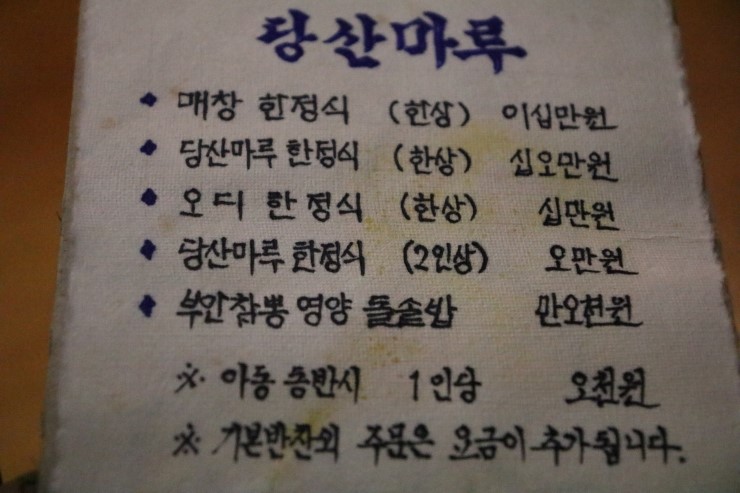 당산마루
매창 한정식 (한상) 이십만원
당산마루 한정식 (한상) 십오만원
오디 한정식 (한상) 십만원
당산마루 한정식 (2인상) 오만원
부안참뽕 영양 돌솥밥 만오천원
※ 아동 동반시 1인당 오천원
※ 기본반찬외 주문은 요금이 추가됩니다.